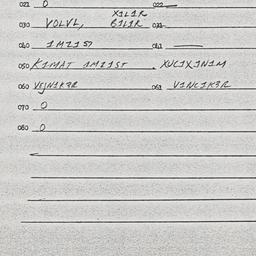 021 0 022 —
X1L1R
030 VOLVL, B1L1R 031
040 1M2157 041 —
050 K1MAT 1M21ST . XUC1X1N1M
060 061 V1NC1K3R
070 0
080 0